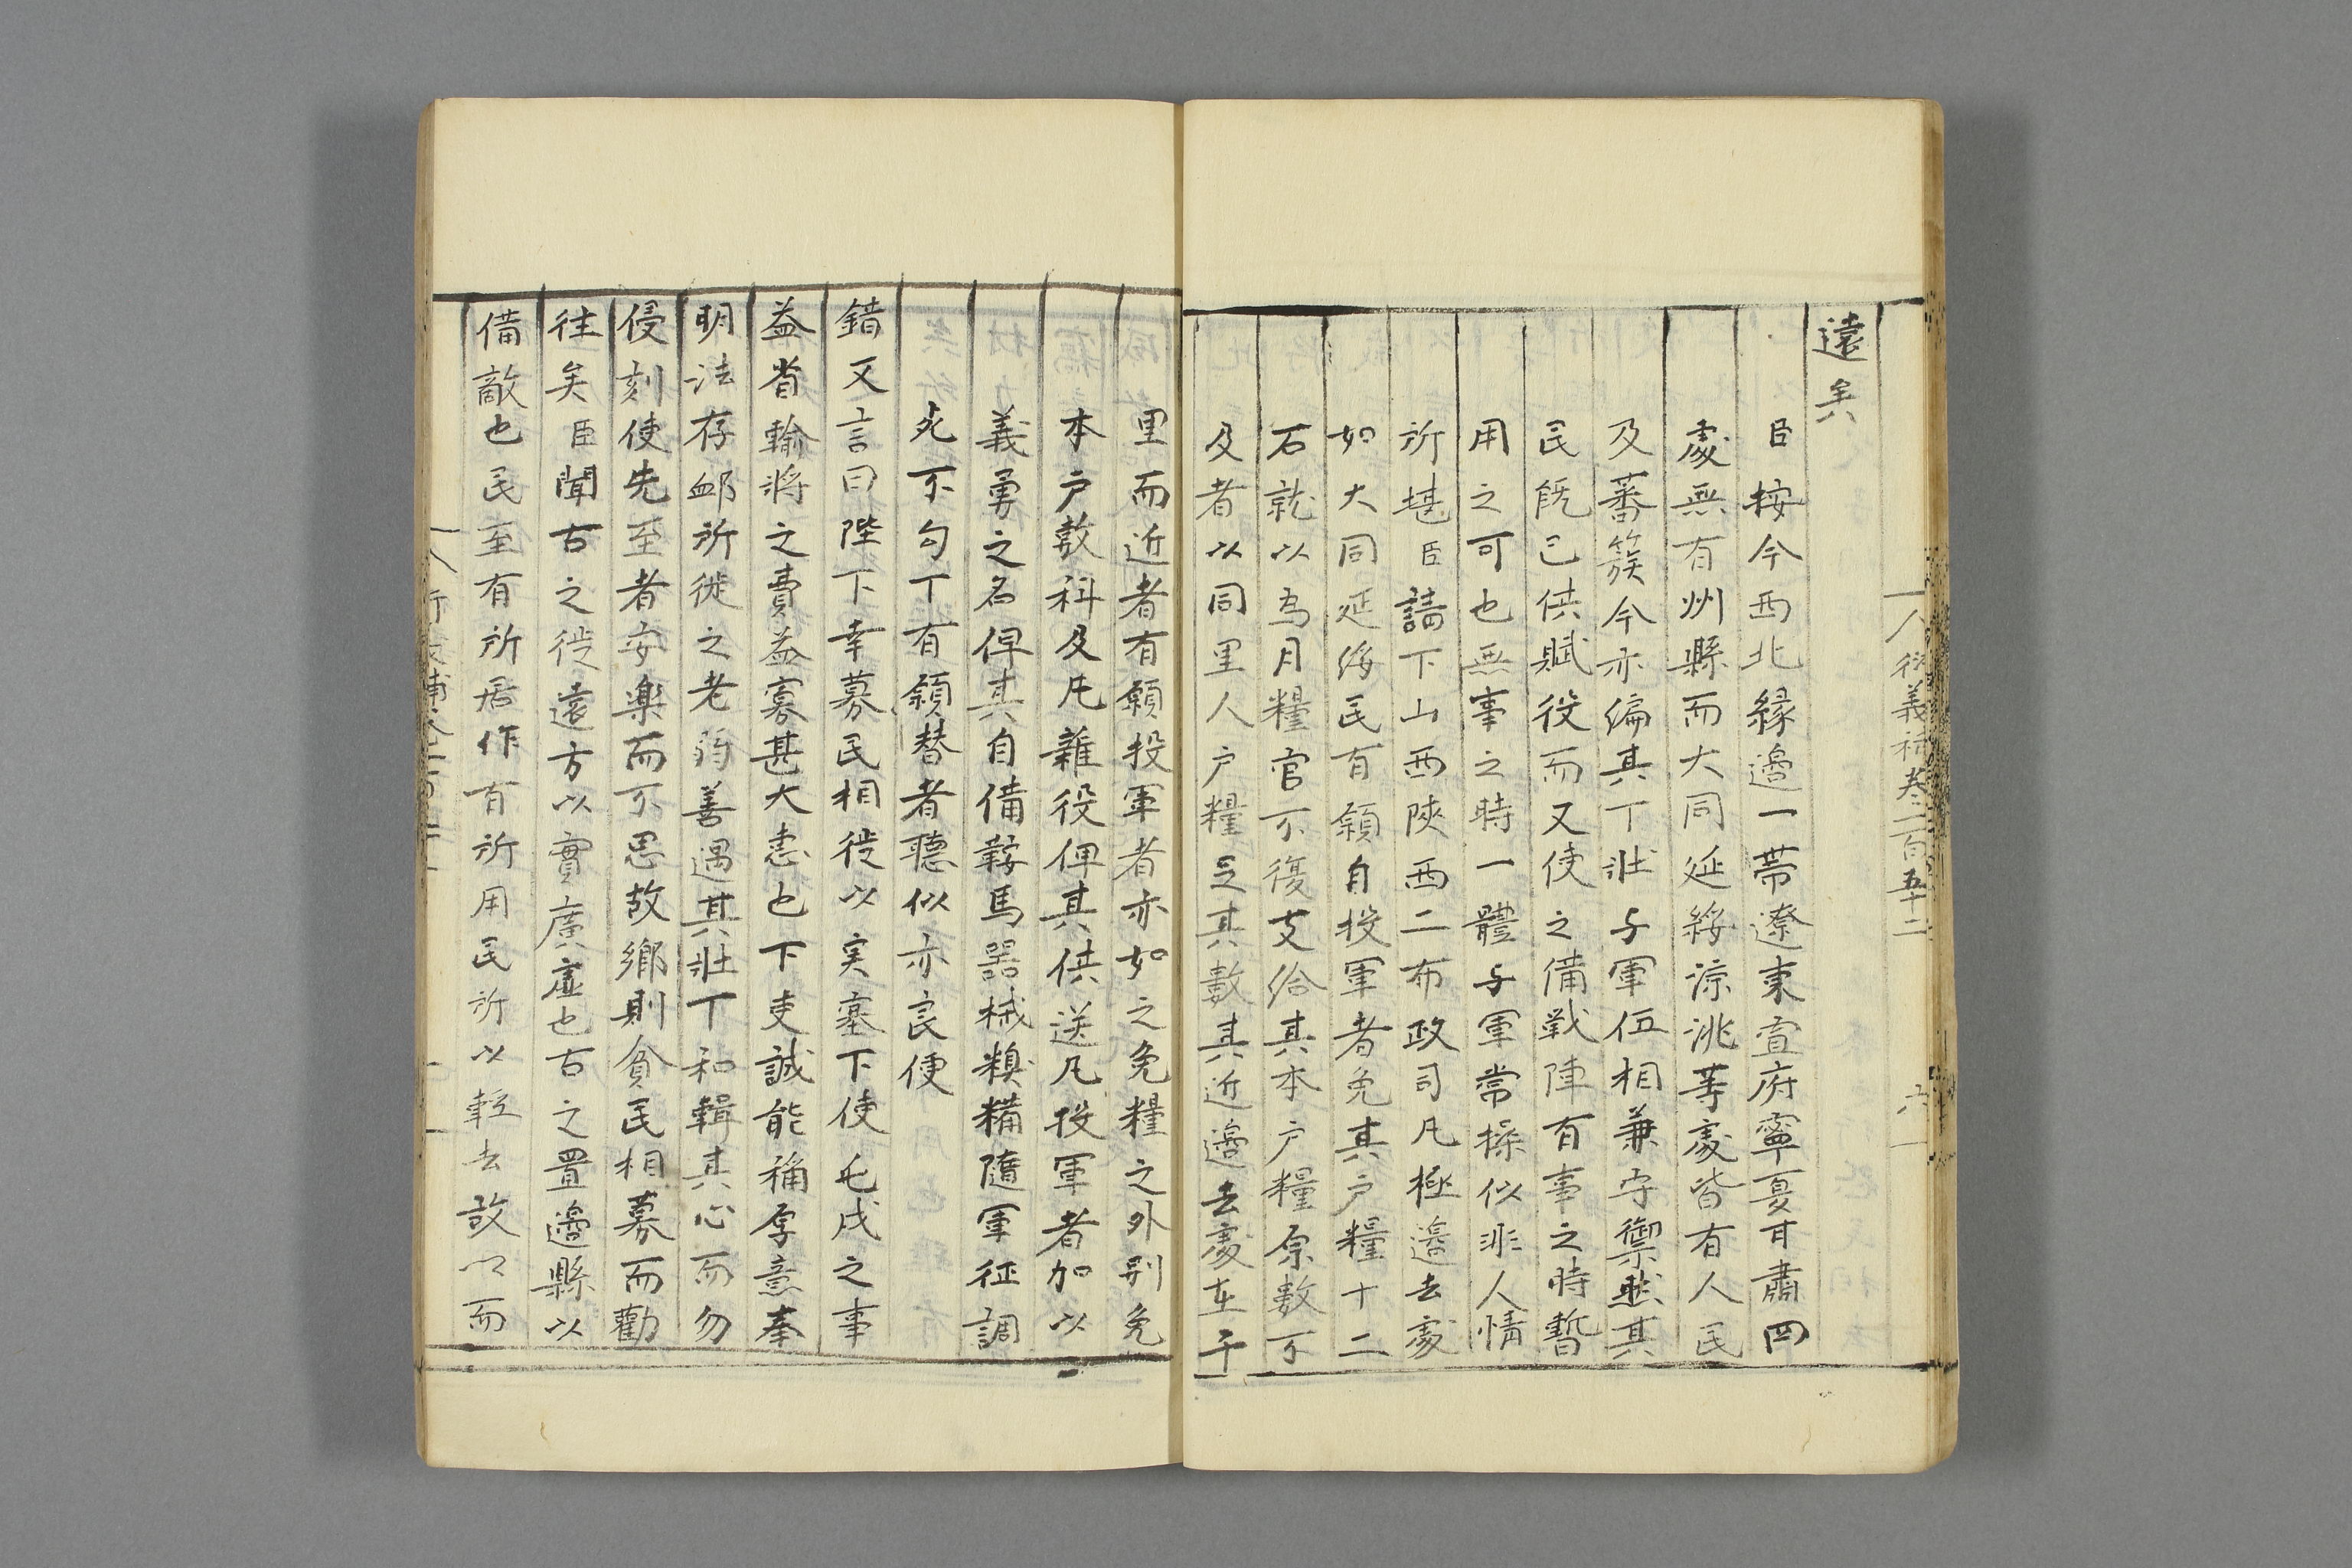 衍義補卷一百五十二
六
遠矣
臣按今西北緣邊一帶遼東宣府寧夏甘肅四
處無有州縣而大同延綏涼洮等處皆有人民
及蕃簇今亦編其丁壯与軍伍相兼守禦然其
民既已供賦役而又使之備戰陣有事之時暫
用之可也無事之時一體与軍常操似非人情
所堪臣請下山西陝西二布政司凡極邊去處
如大同延綏民有願自投軍者免其户糧十二
石就以為月糧官不復支給其本户糧原數不
及者以同里人户糧足其數其近邊去處在千
里而近者有願投軍者亦如之免糧之外别免
本户數科及凡雜役俾其供送凡投軍者加以
義勇之名俾其自備鞍馬器械糗糒隨軍征調
死不勾丁有願替者聽似亦良便
錯又言曰陛下幸募民相徙以実塞下使屯戍之事
益省輸將之費益寡甚大恵也下吏誠能稱厚意奉
明法存䘏所徙之老弱善遇其壯丁和輯其心而勿
侵刻使先至者安樂而不思故鄉則貧民相募而勸
往矣臣聞古之徙遠方以實廣虛也古之置邊縣以
備敵也民至有所居作有所用民所以輕去故乡而